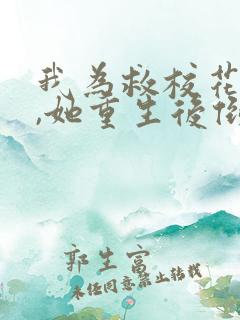 我為救校花
,她重生後
郭生富
未任同意禁止转载